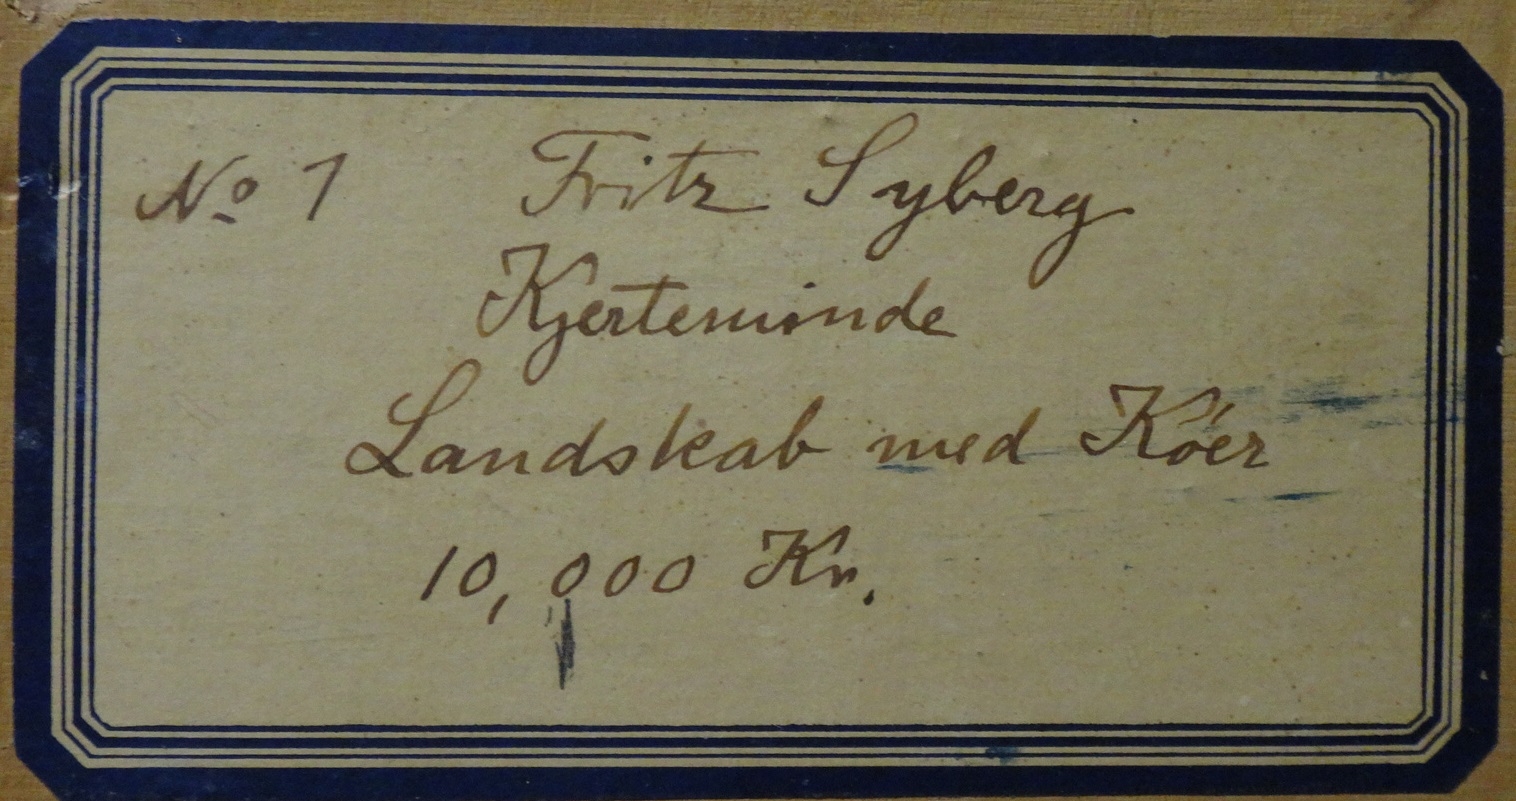 No 1 Fritz Syberg
Kjerteminde
Landskab med Köer
10,000 Kr.